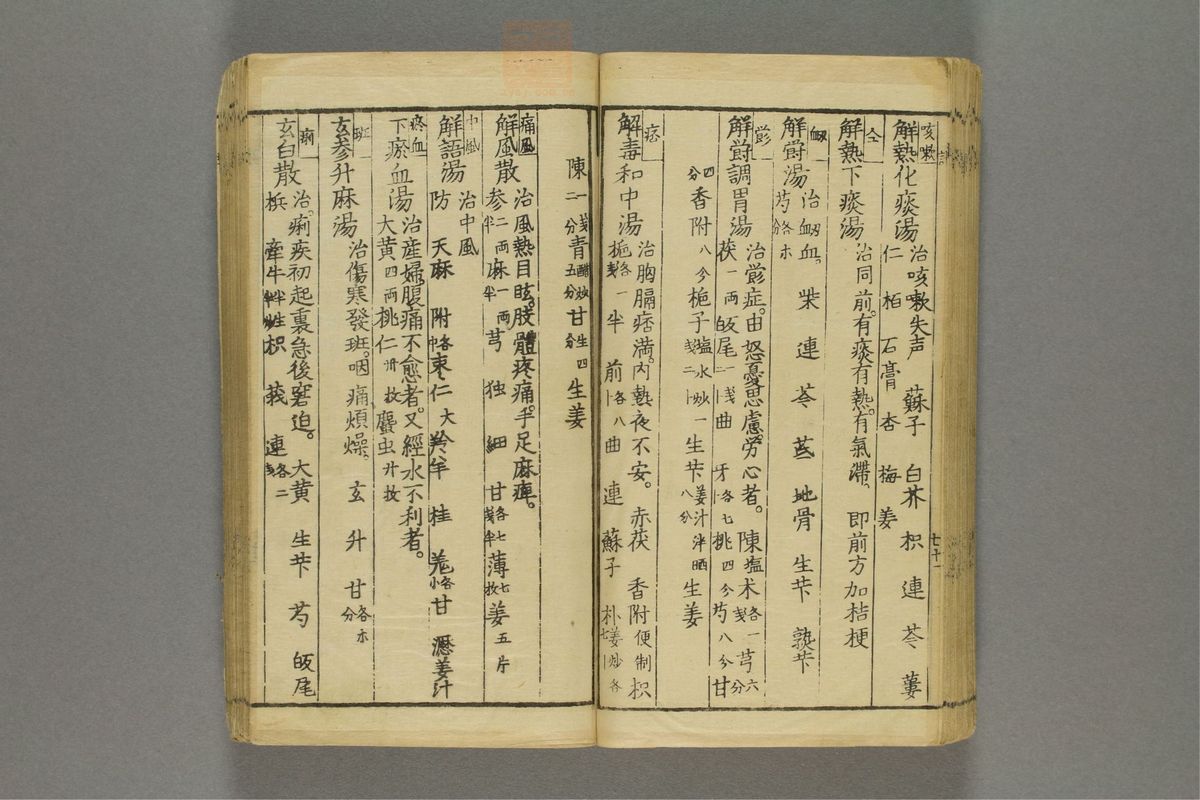 咳嗽
解熱化痰湯 治咳嗽失声 蘇子 白芥 枳 連 芩 蔞
仁 栢 石膏 杏 梅 姜
仝
解熱下痰湯 治同前。有痰有熱。有氣滯。即前方加桔梗
衂
解欝湯 治衂血。 柴 連 芩 芪 地骨 生芐 熟芐
芍
欝
解欝調胃湯 治欝症。由怒憂思慮。労心者。陳塩 术各一戔 芎六分
茯一両 皈尾一戔二卜 曲 牙各七卜 桃四分 芍八分 甘
四分 香附八分 梔子塩水炒一戔二卜 生芐姜汁泮晒八分 生姜
痞
解毒和中湯 治胸膈痞満。内熱夜不安。赤茯 香附便制 枳
梔各一戔半 前各八卜 曲 連 蘇子 朴姜炒各七卜
七十一
陳一戔二分 青醋炒五分 甘生四分 生姜
痛風
解風散 治風熱目眩。肢體疼痛。手足麻痺。
参二両半 麻一両半 芎 独 細 甘各七戔半 薄七枚 姜五片
中風
解語湯 治中風
防 天麻 附各中 枣仁大 羚羊 桂 羌各小 甘 瀝 姜汁
瘀血
下瘀血湯 治産婦。腹痛不愈者。又經水不利者。
大黄四両 桃仁卅枚 䗪虫廾枚
班
玄参升麻湯 治傷寒發班。咽痛煩燥。 玄 升 甘各朩分
痢
玄白散 治。痢疾初起裏急後窘迫。 大黄 生芐 芍 皈尾
梹 牽牛半生半炒 枳 莪 連各二戔